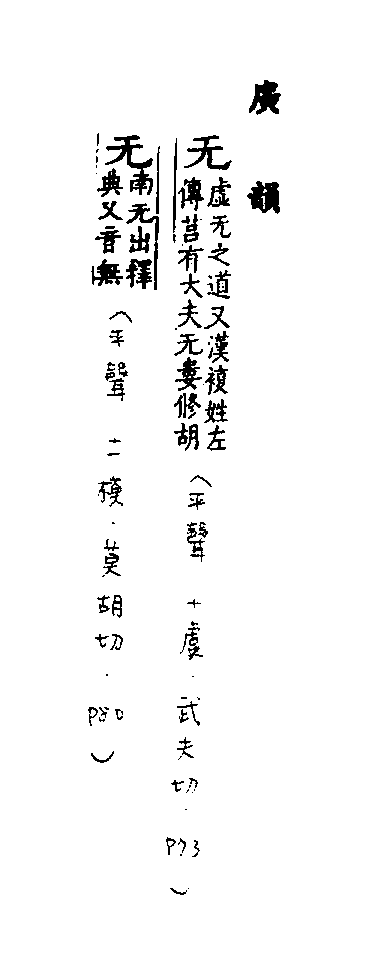 廣韻
无
虛无之道又漢複姓左
傳莒有大夫无婁修胡
（平聲 十虞．武夫切．P73）
无
南无出釋
典又音無
（平聲 十一模．莫胡切．P80）